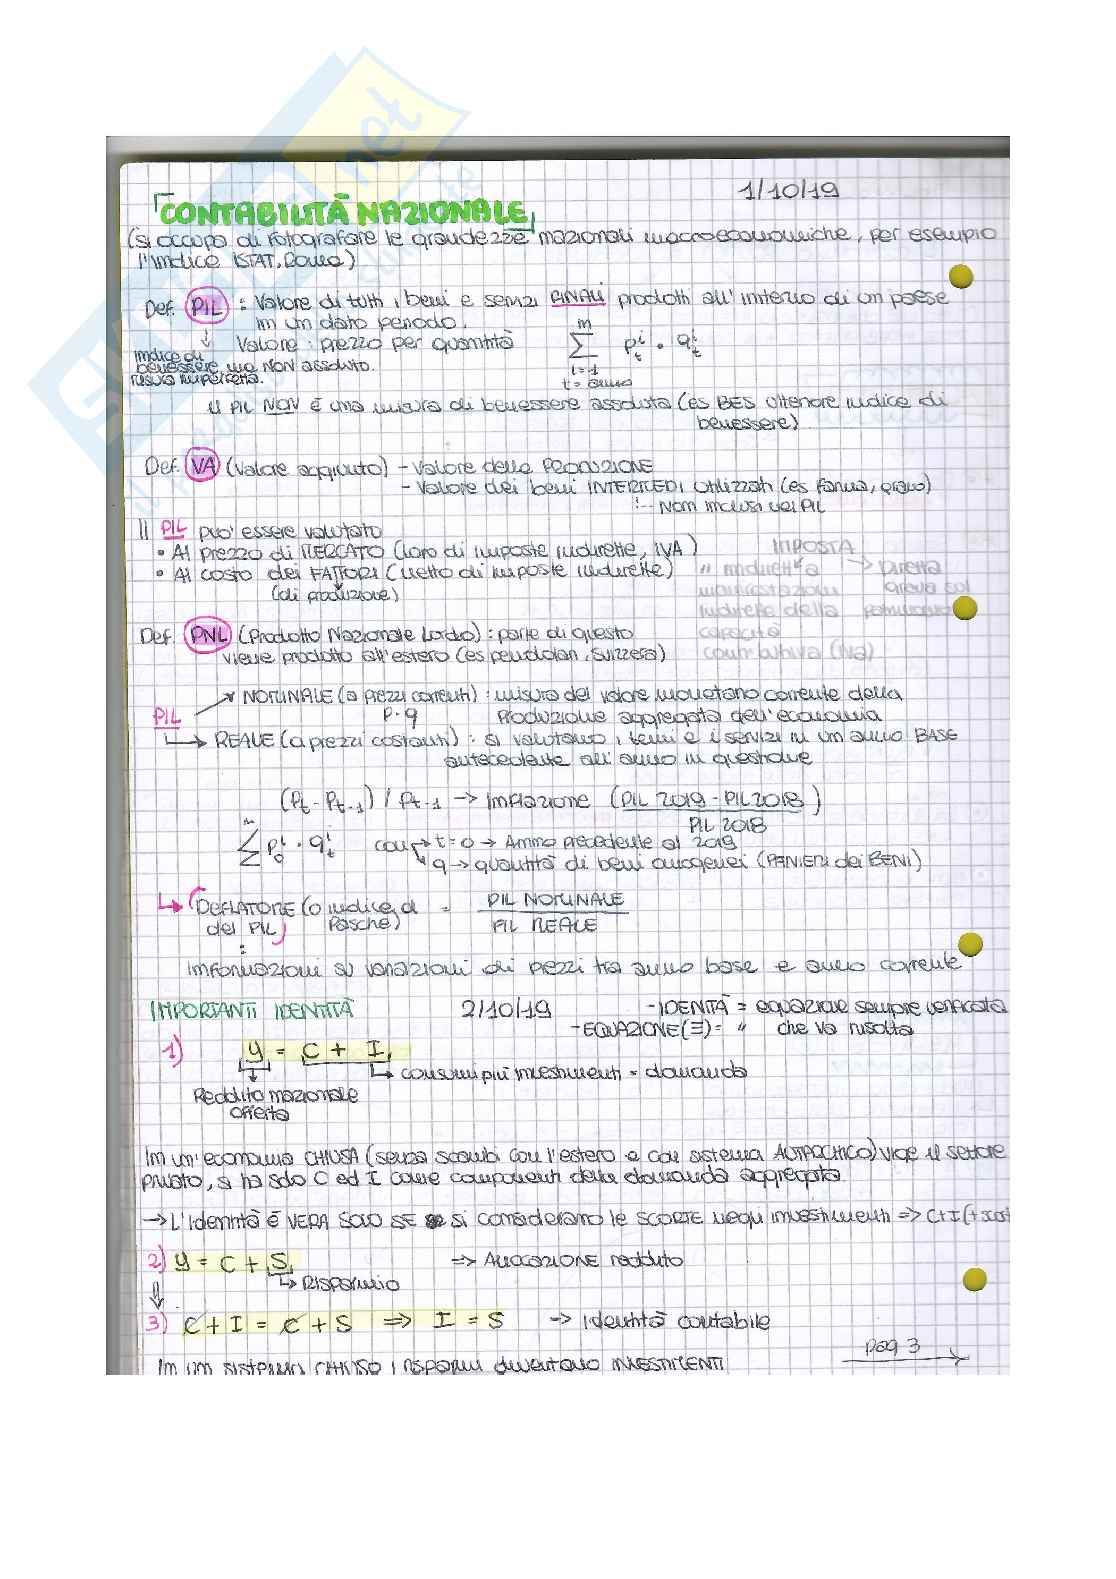 1/10/19
CONTABILITÀ NAZIONALE
(si occupa di fotografare le grandezze nazionali macroeconomiche, per esempio
l'indice ISTAT, Doxa)
Def. PIL : Valore di tutti i beni e servizi FINALI prodotti all'interno di un paese
in un dato periodo.
↓ Valore : prezzo per quantità
n
∑ p_t^i · q_t^i
i=1
t= anno
indice di
benessere ma NON assoluto.
misura imperfetta.
Il PIL NON È una misura di benessere assoluta (es BES ulteriore indice di
benessere)
Def. VA (Valore aggiunto) - Valore della PRODUZIONE
- Valore dei beni INTERMEDI utilizzati (es farina, grano)
Non inclusi nel PIL
Il PIL può essere valutato
• Al prezzo di MERCATO (loro di imposte indirette, IVA)
• Al costo dei FATTORI (netto di imposte indirette)
(di produzione)
IMPOSTA
indiretta → Diretta
manifestazioni grava sul
indirette della patrimonio
capacità
contributiva (iva)
Def. PNL (Prodotto Nazionale Lordo) : parte di questo
viene prodotto all'estero (es pendolari, Svizzera)
PIL
NOMINALE (a prezzi correnti) : misura del valore monetario corrente della
P·q produzione aggregata dell'economia
REALE (a prezzi costanti) : si valutano i beni e i servizi in un anno BASE
antecedente all'anno in questione
(Pt - Pt-1) / Pt-1 → Inflazione (PIL 2019 - PIL 2018)
PIL 2018
∑ p_0^i · q_t^i con t=0 → Anno precedente al 2019
q → quantità di beni omogenei (PANIERI dei BENI)
DEFLATORE (o indice di = PIL NOMINALE
del PIL Pasche) PIL REALE
:
informazioni su variazioni di prezzi tra anno base e anno corrente
IMPORTANTI IDENTITÀ 2/10/19 - IDENITÀ = equazione sempre verificata
- EQUAZIONE (≡) = " che va risolta
1) Y = C + I
consumi più investimenti = domanda
Reddito nazionale
Offerta
In un'economia CHIUSA (senza scambi con l'estero e con sistema AUTARCHICO) vige il settore
privato, si ha solo C ed I come componenti della domanda aggregata.
→ L'identità È VERA SOLO SE si considerano le SCORTE negli investimenti ⇒ C+I(+scort
2) Y = C + S ⇒ ALLOCAZIONE reddito
RISPARMIO
3) C + I = C + S ⇒ I = S → Identità contabile
In un sistema CHIUSO i risparmi diventano INVESTIMENTI
pag 3